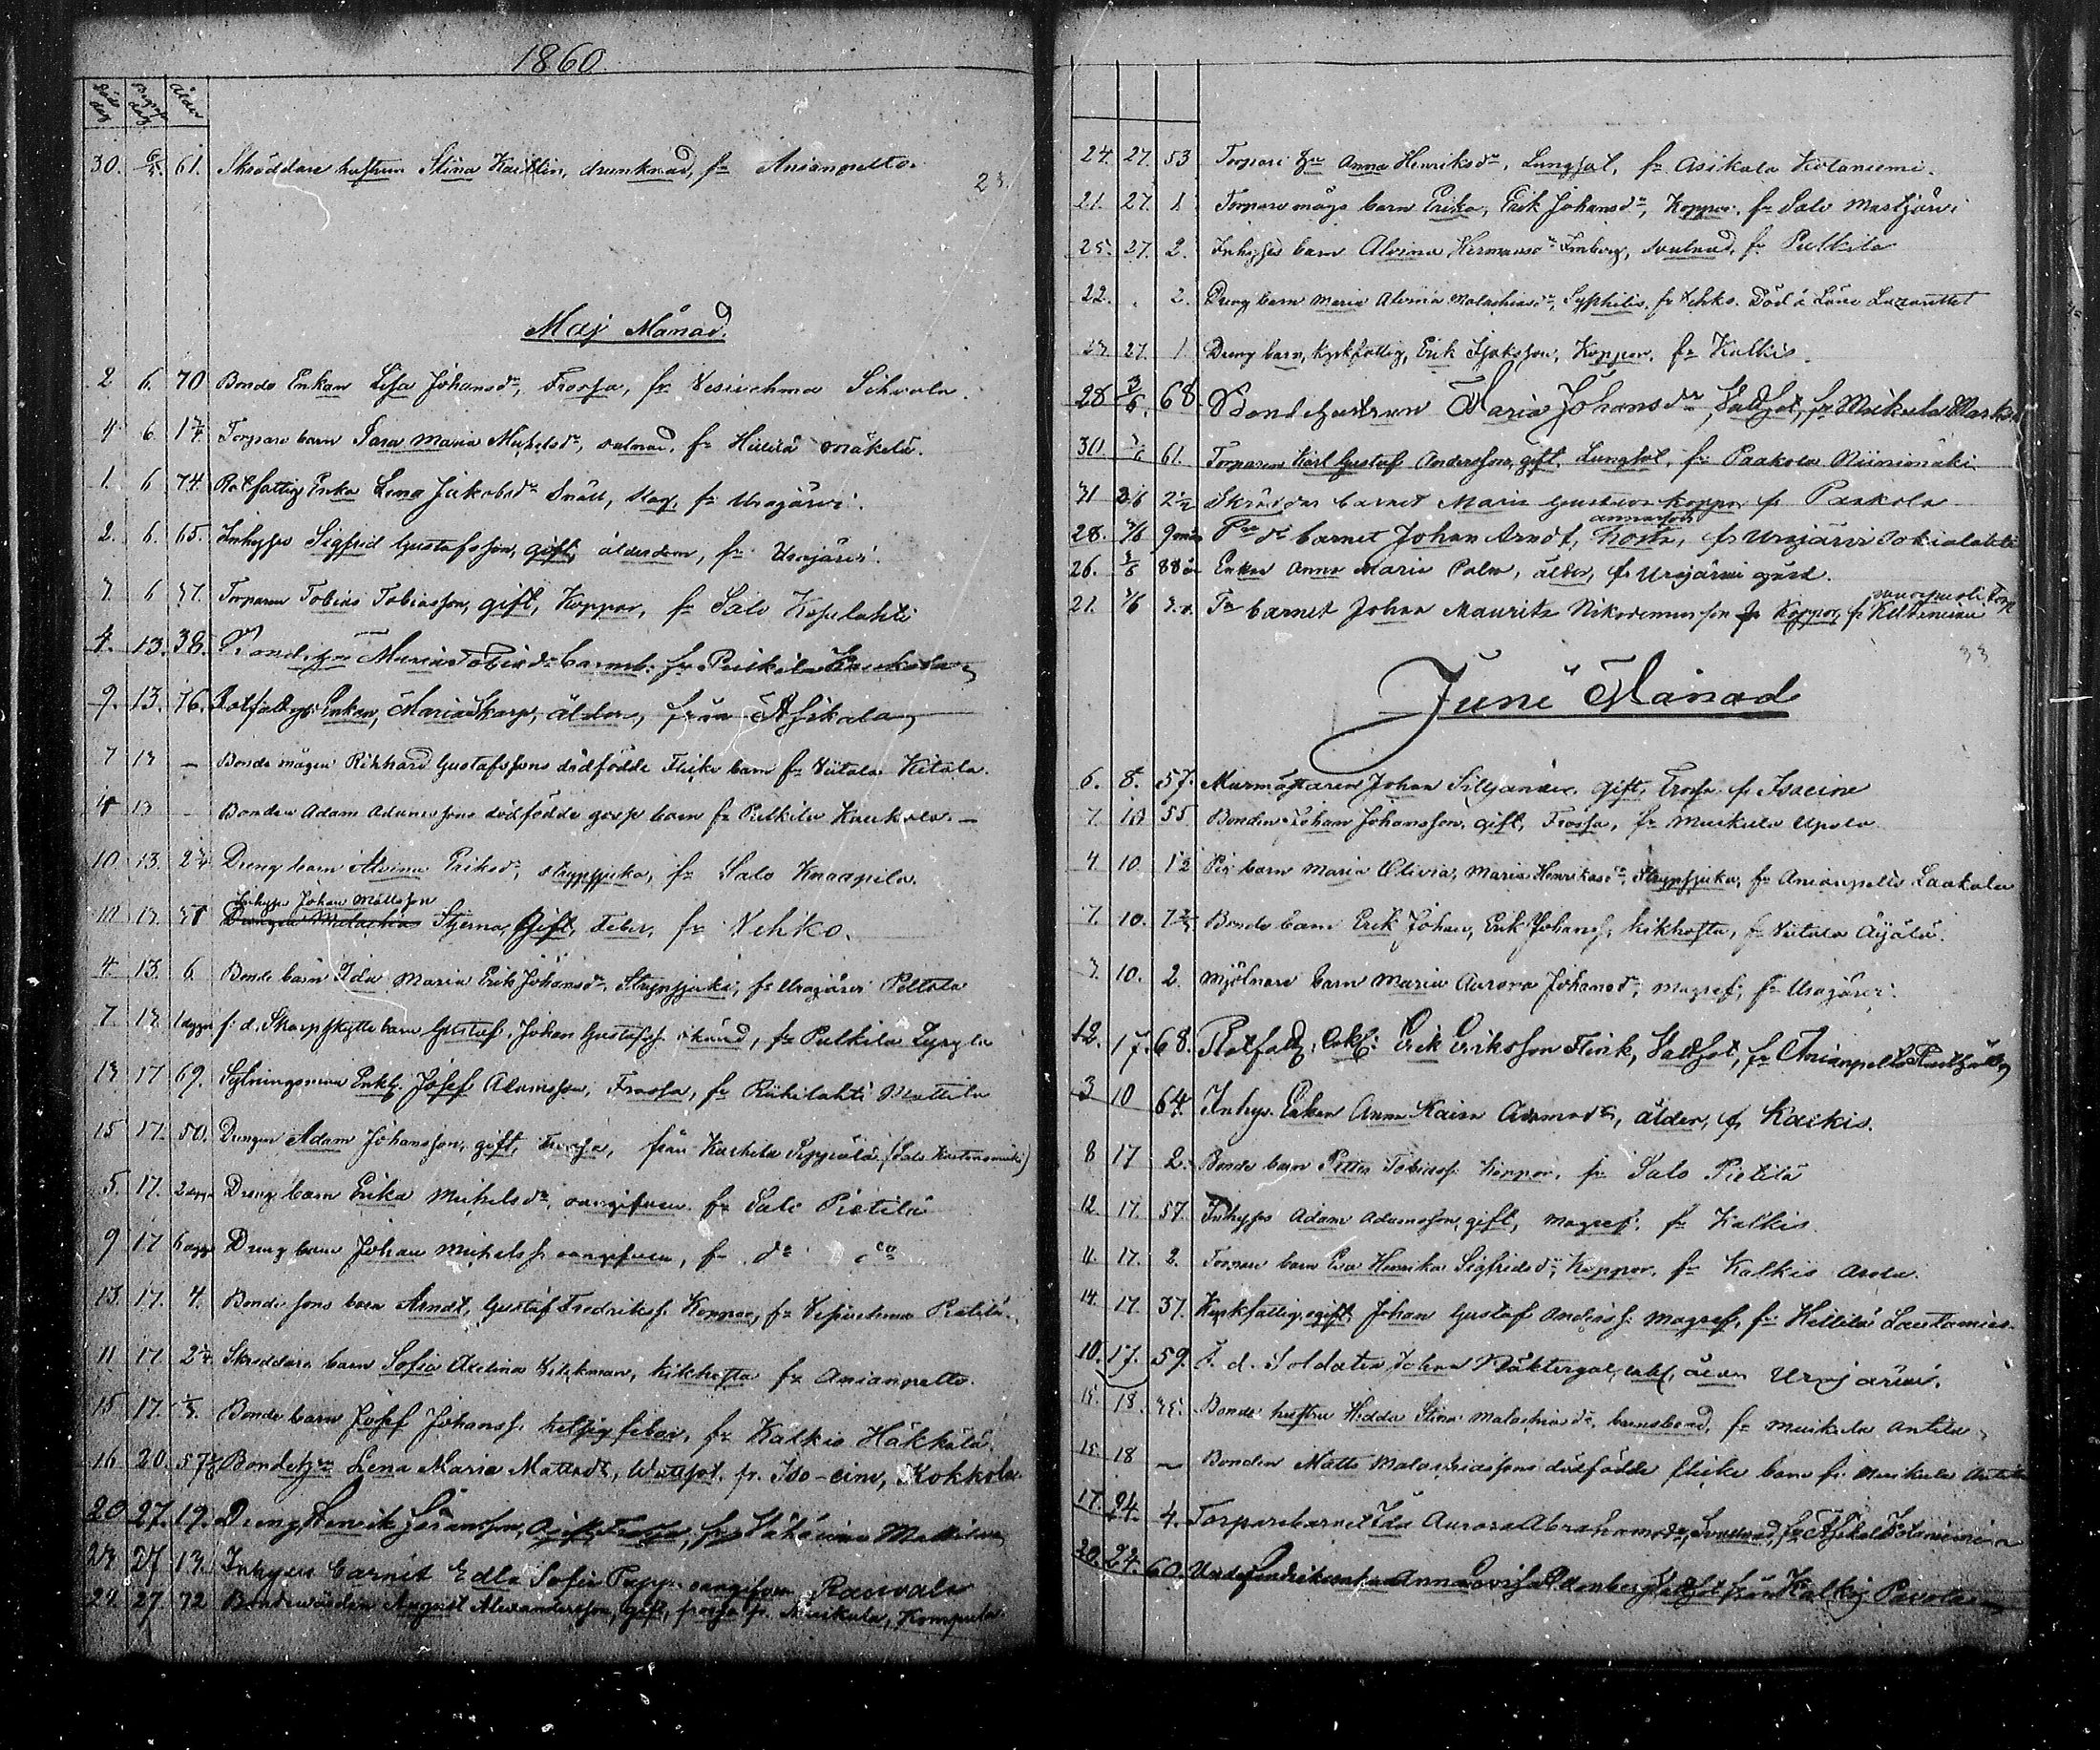 1860
Död dag Begraf. dag Ålder
30. 6/5. 61. Skräddare hustrun Stina Kaitlin, drunknad, fr Anianpelto.
23.
Maj Månad.
2 6. 70 Bonde Enkan Lisa Johansdr, Frossa, fr Vesivehma Sihvola.
4 6 1 3/4 Torpare barn Sara Maria Michelsdr, fr Hillilä Mäkelä.
1. 6 74. Rotfattig Enka Lena Jakobsdr Snäll, Slag, fr Urajärvi.
2. 6. 65. Inhyses Sigfrid Gustafsson, gift, ålderdom, fr Urajärvi.
6 37. Torparen Tobias Tobiasson, gift, Koppor, fr Salo
4. 13. 38. Maria Tobiadr barnsb. fr Pulkila Kaukola
9. 13. 76. Rotfattige Enkan, Maria Skarp, ålder, från Asikala
7 13 — Bonde mågen Rikhard Gustafssons dödfödde Flicke barn fr Viitala Kitala.
13 — Bonden Adam Adamssons dödfödde goss barn fr Pulkila Kaukola —
10. 13. 2 3/4 Dreng barn Alvina Eriksdr, strypsjuka, fr Salo Knaapila.
Inhyses Johan Mattsson
Drengen Malachias Stjerna, Gift, Feber, fr Vehko.
4 13. 6. Bonde barn Ida Maria Erik Johansdr, Strypsjuka, fr Urajärvi Peltola
7 13. 1 dygn f. d. Skarpskytte barn Gustaf, Johan Gustafss. okänd, fr Pulkila Zyrylä
13 17 69. Sytningsman Enkl. Josef Adamsson, Frossa, fr Riihilahti Mattila
15 17. 50. Drengen Adam Johansson, gift, Frossa, från Kurhila Seppälä (Salo
5. 17. 2 dygn Dreng barn Erika Michelsdr, oangifven fr Salo Pietilä
9 17 6 dygn Dreng barn Johan Michelss. oangifven, fr do do
13. 17. 4. Bonde sons barn Arndt, Gustaf Fredrikss. Koppor, fr Vesivehma Pietilä.
11 17. 2 3/4 Skräddare barn Sofia Adelina Vilckman, kikhosta fr Anianpelto.
15 17. Bonde barn Josef Johanss. hetsig feber, fr Kalkis Häkkälä.
16 20. 57 Bonde hru Lena Maria Mattsdr, Wattsot. fr. Iso-eino, Kokkola
20 27. 19. Dreng Henrik Johansson, Ogift, Frossa, fr Vähäeino Mattila
27 13. Inhyses barnet Edla Sofia Papp. oangifven Rasvala
27. 72 Bondevärden August Alexandersson, gift, frossa fr. Muikula, Kompula
24. 27. 53 Torpare hru Anna Henriksdr, Lungsot, fr Asikala Kotaniemi.
21. 27. 1 Torpare mågs barn Erika, Erik Johansdr, Koppor, fr Salo Mustjärvi
25. 27. 2. Inhyses barn Alvina Hermansdr Limberg, fr Pulkila
22. . 2. Dreng barn Maria Alvina Malachiasdr, Syphilis, fr Vehko. Död å Läne Lazarettet
27. 1. Dreng barn, kyrkfattig, Erik Isaksson, Koppor, fr Kalkis.
28 3/6. 68. Bondehustrun Maria Johansdr, Vattsot, fr Muikula
30 61. Torparen Karl Gustaf Andersson, gift, Lungsot, fr Paakola Niinimäki
31 3/6 2 1/2 Skräddar barnet Maria Gustava koppor fr Paakola
28. 3/6 9 mån do barnet Johan Arndt, Hosta, fr Urajärvi
26. 3/6 88 år Enkan Anna Maria Palm, ålder, fr Urajärvi gård.
21. 3/6 Tr barnet Johan Mauritz Nikodemusson Koppor, fr Keltaniemi
33
Juni Månad
6. 8. 57. Murmästaren Johan Siljander, gift, Frossa, fr Isoeino
7. 10 55 Bonden Johan Johansson, gift, Frossa, fr Muikula Upola
4. 10. 1 1/2 Pig barn Maria Olivia, Maria Henriksdr, Strypsjuka, fr Anianpelto Laakola
7. 10. Bonde barn Erik Johan, Erik Johanss. kikhosta, fr Viitala Äijälä.
7. 10. 2. Mjölnare barn Maria Aurora Johansdr, magref, fr Urajärvi.
12. 17. 68. Rotfattig, Enkl. Erik Eriksson Flink, Vattsot, fr Anianpelto
3 10 64. Inhys. Enkan Anna Kaisa Adamsdr, ålder, fr Kalkis.
8 17 2. Bonde barn Petter Tobiass. Koppor, fr Salo Pietilä
12 17. 57. Inhyses Adam Adamsson, gift, magref, fr Kalkis
11. 17. 2. Torpare barn Eva Henrika Sigfridsdr, Koppor, fr Kalkis Arola.
14. 17 37. Kyrkfattig, ogift, Johan Gustaf Anderss. magref, fr Hillilä Lautamies.
10. 17. 59. F. d. Soldaten Johan Näktergal, enkl, ålder Urajärvi.
15. 18. 35. Bonde hustru Hedda Stina Malachiasdr, barnsbörd, fr Muikula Antila
15 18 — Bonden Matts Malachiassons dödfödde flicke barn fr. Muikula Antila
17. 24. 4. Torparebarnet Ida Aurora Abrahamsdr, fr Asikala Kotaniemi
20. 24. 60. Anna Lovisa Vattsot från Kalkis Pavola